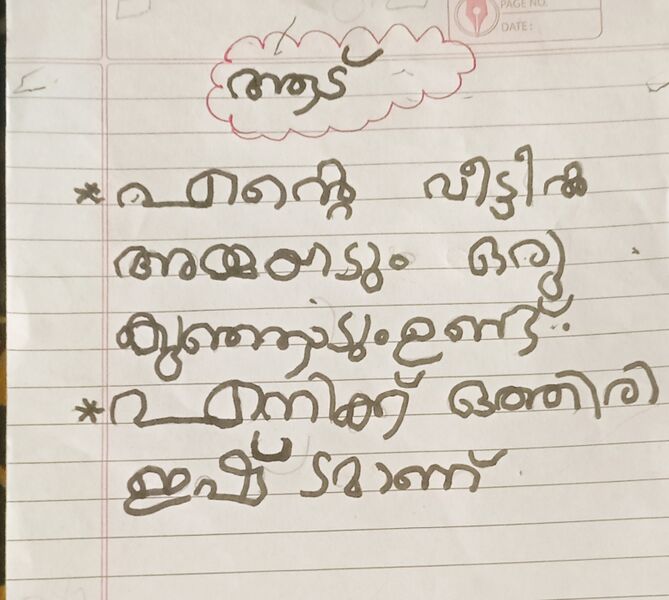 PAGE NO.
DATE:
ആട്
* എന്റെ വീട്ടിൽ
അമ്മയാടും ഒരു
കുഞ്ഞാടുംഉണ്ട്.
* എനിക്ക് ഒത്തിരി
ഇഷ്ടമാണ്